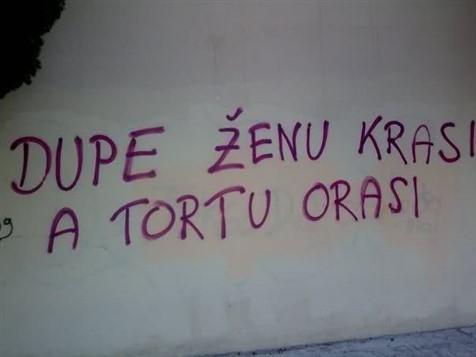 DUPE ŽENU KRASI
A TORTU ORASI